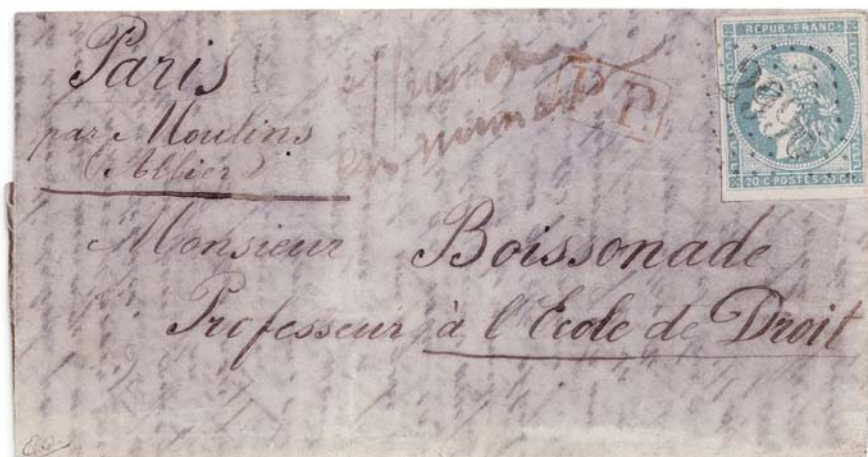 Paris
par Moulins
(Allier)
en numéraire
P.P.
REPUB · FRANC ·
20 · C · POSTES · 20 · C ·
Monsieur Boissonade
Professeur à l'Ecole de Droit